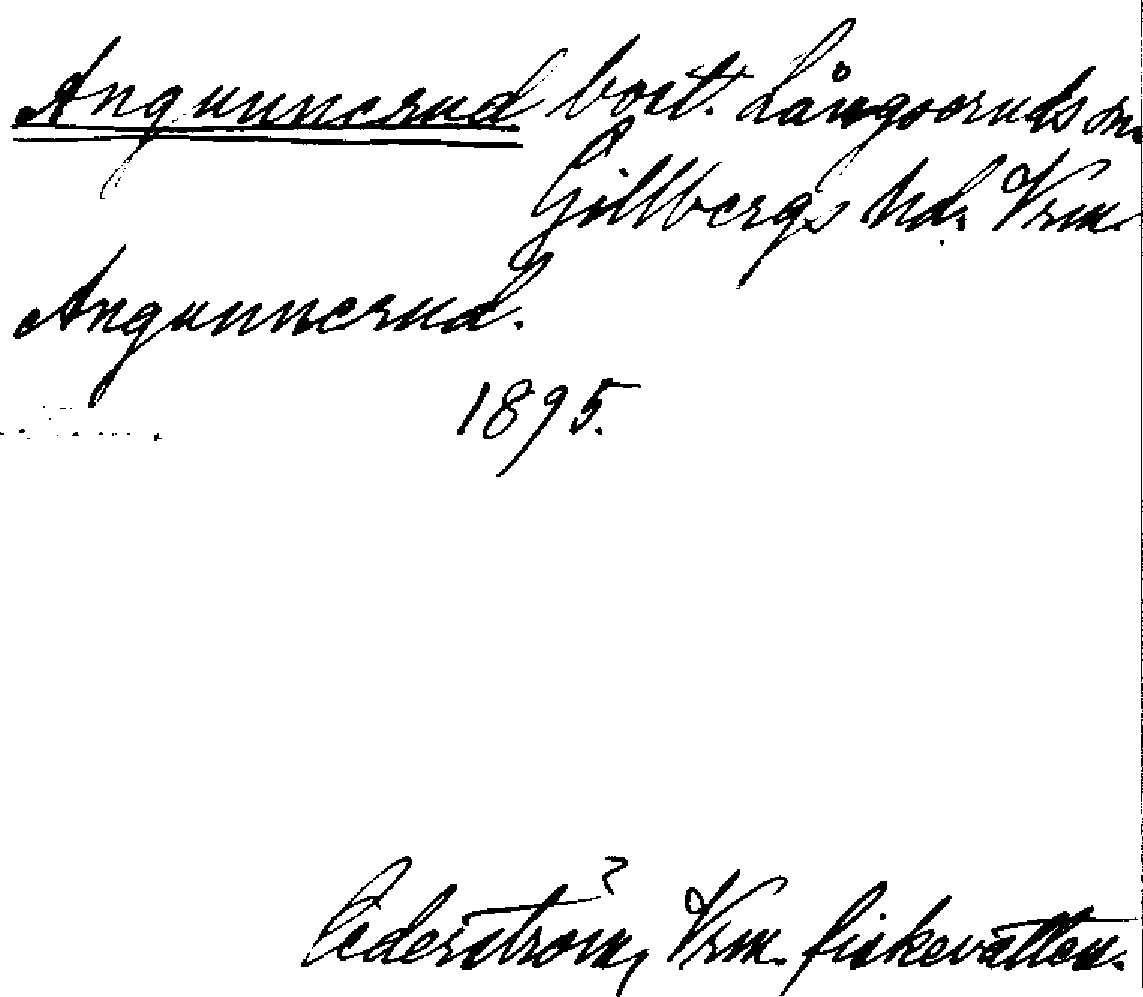 Angunnerud bost. Långseruds sn.
Gillbergs hd. Vrm.
Angunnerud.
1895.
Cederström, Vrm. fiskevatten.